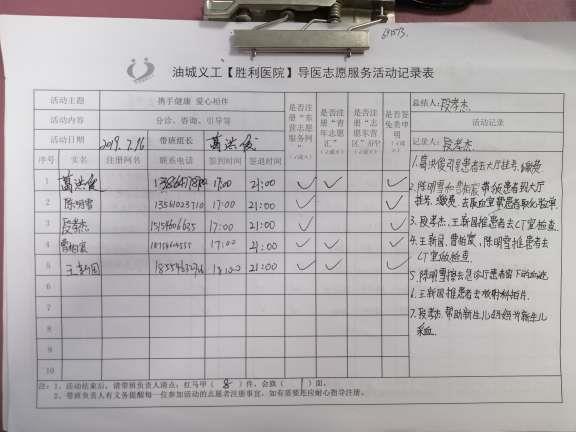 油城义工【胜利医院】导医志愿服务活动记录表
活动主题 携手健康 爱心相伴
活动内容 分诊、咨询、引导等
活动日期 2019.7.16 带班组长 葛洪俊
序号 实名 注册网名 联系电话 签到时间 签退时间
是否注册“东营志愿服务网”（√或×）
是否注册“青年志愿汇”（√或×）
是否注册“志愿东营区”APP（√或×）
是否签免责申明（√或×）
1 葛洪俊 17:00 21:00 √ √ √
2 陈明雪 13561023710 17:00 21:00 √ √
3 段孝杰 17:00 21:00 √ √
4 曹柏宸 17:00 21:00 √ √ √
5 王新国 18:00 21:00 √ √ √
6
7
8
9
10
总结人：段孝杰
活动记录
记录人：段孝杰
1.葛洪俊引导患者去大厅挂号、缴费
2.陈明雪和曹柏宸带领患者到大厅
挂号、缴费、去取血室帮患者取化验单.
3.段孝杰、王新国推患者去CT室检查.
4.王新国、曹柏宸、陈明雪推患者去
CT室做检查
6.王新国推患者去放射科拍片.
7.段孝杰帮助新生儿妈妈对新生儿
采血.
注：1、活动结束后，请带班负责人清点：红马甲（8）件，会旗（1）面。
2、带班负责人有义务提醒每一位参加活动的志愿者注册事宜，如有需要还应耐心指导注册。